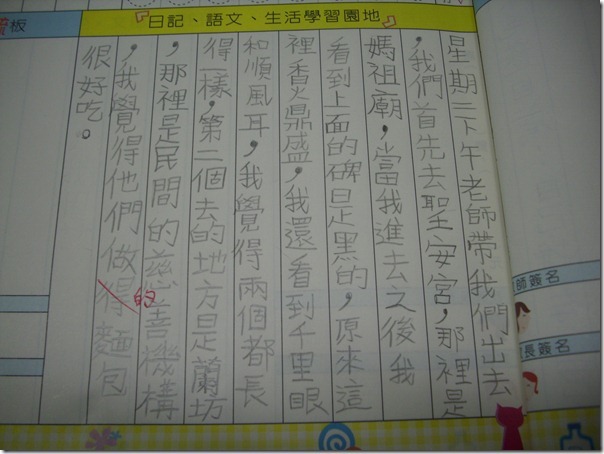 板
『日記、語文、生活學習園地』
星期三下午老師帶我們出去
，我們首先去聖安宮，那裡是
媽祖廟，當我進去之後我
看到上面的碑是黑的，原來這
裡香火鼎盛，我還看到千里眼
和順風耳，我覺得兩個都長
得一樣，第二個去的地方是蘭坊
，那裡是民間的慈善機構
，我覺得他們做得麵包
的
很好吃。
師簽名
長簽名